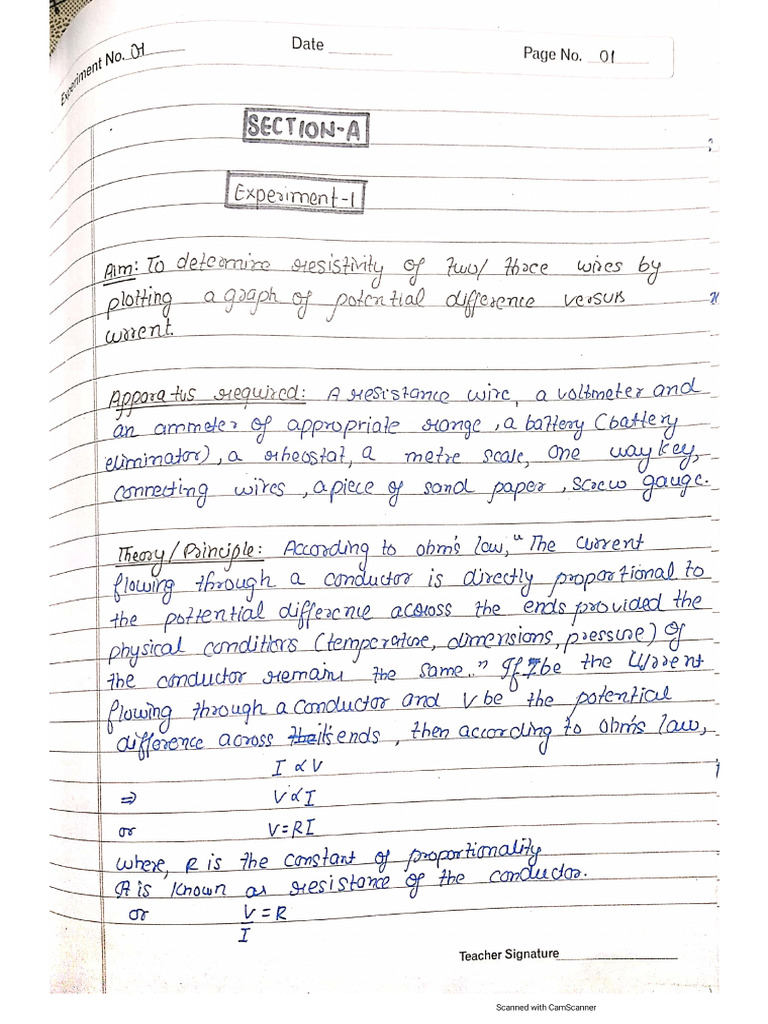 Experiment No. 01
Date
Page No. 01
SECTION-A
Experiment-1
Aim: To determine resistivity of two/ three wires by
plotting a graph of potential difference versus
current.
Apparatus required: A resistance wire, a voltmeter and
an ammeter of appropriate range, a battery (battery
eliminator), a rheostat, a metre scale, one way key,
connecting wires, a piece of sand paper, screw gauge.
Theory/Principle: According to ohm's law, "The current
flowing through a conductor is directly proportional to
the pottential difference across the ends provided the
physical conditions (temperature, dimensions, pressure) of
the conductor remains the same." If I be the current
flowing through a conductor and V be the potential
difference across its ends, then according to ohm's law,
I ∝ V
⇒ V ∝ I
or V = RI
where, R is the constant of proportionality
It is known as resistance of the conductor.
or V/I = R
Teacher Signature
Scanned with CamScanner